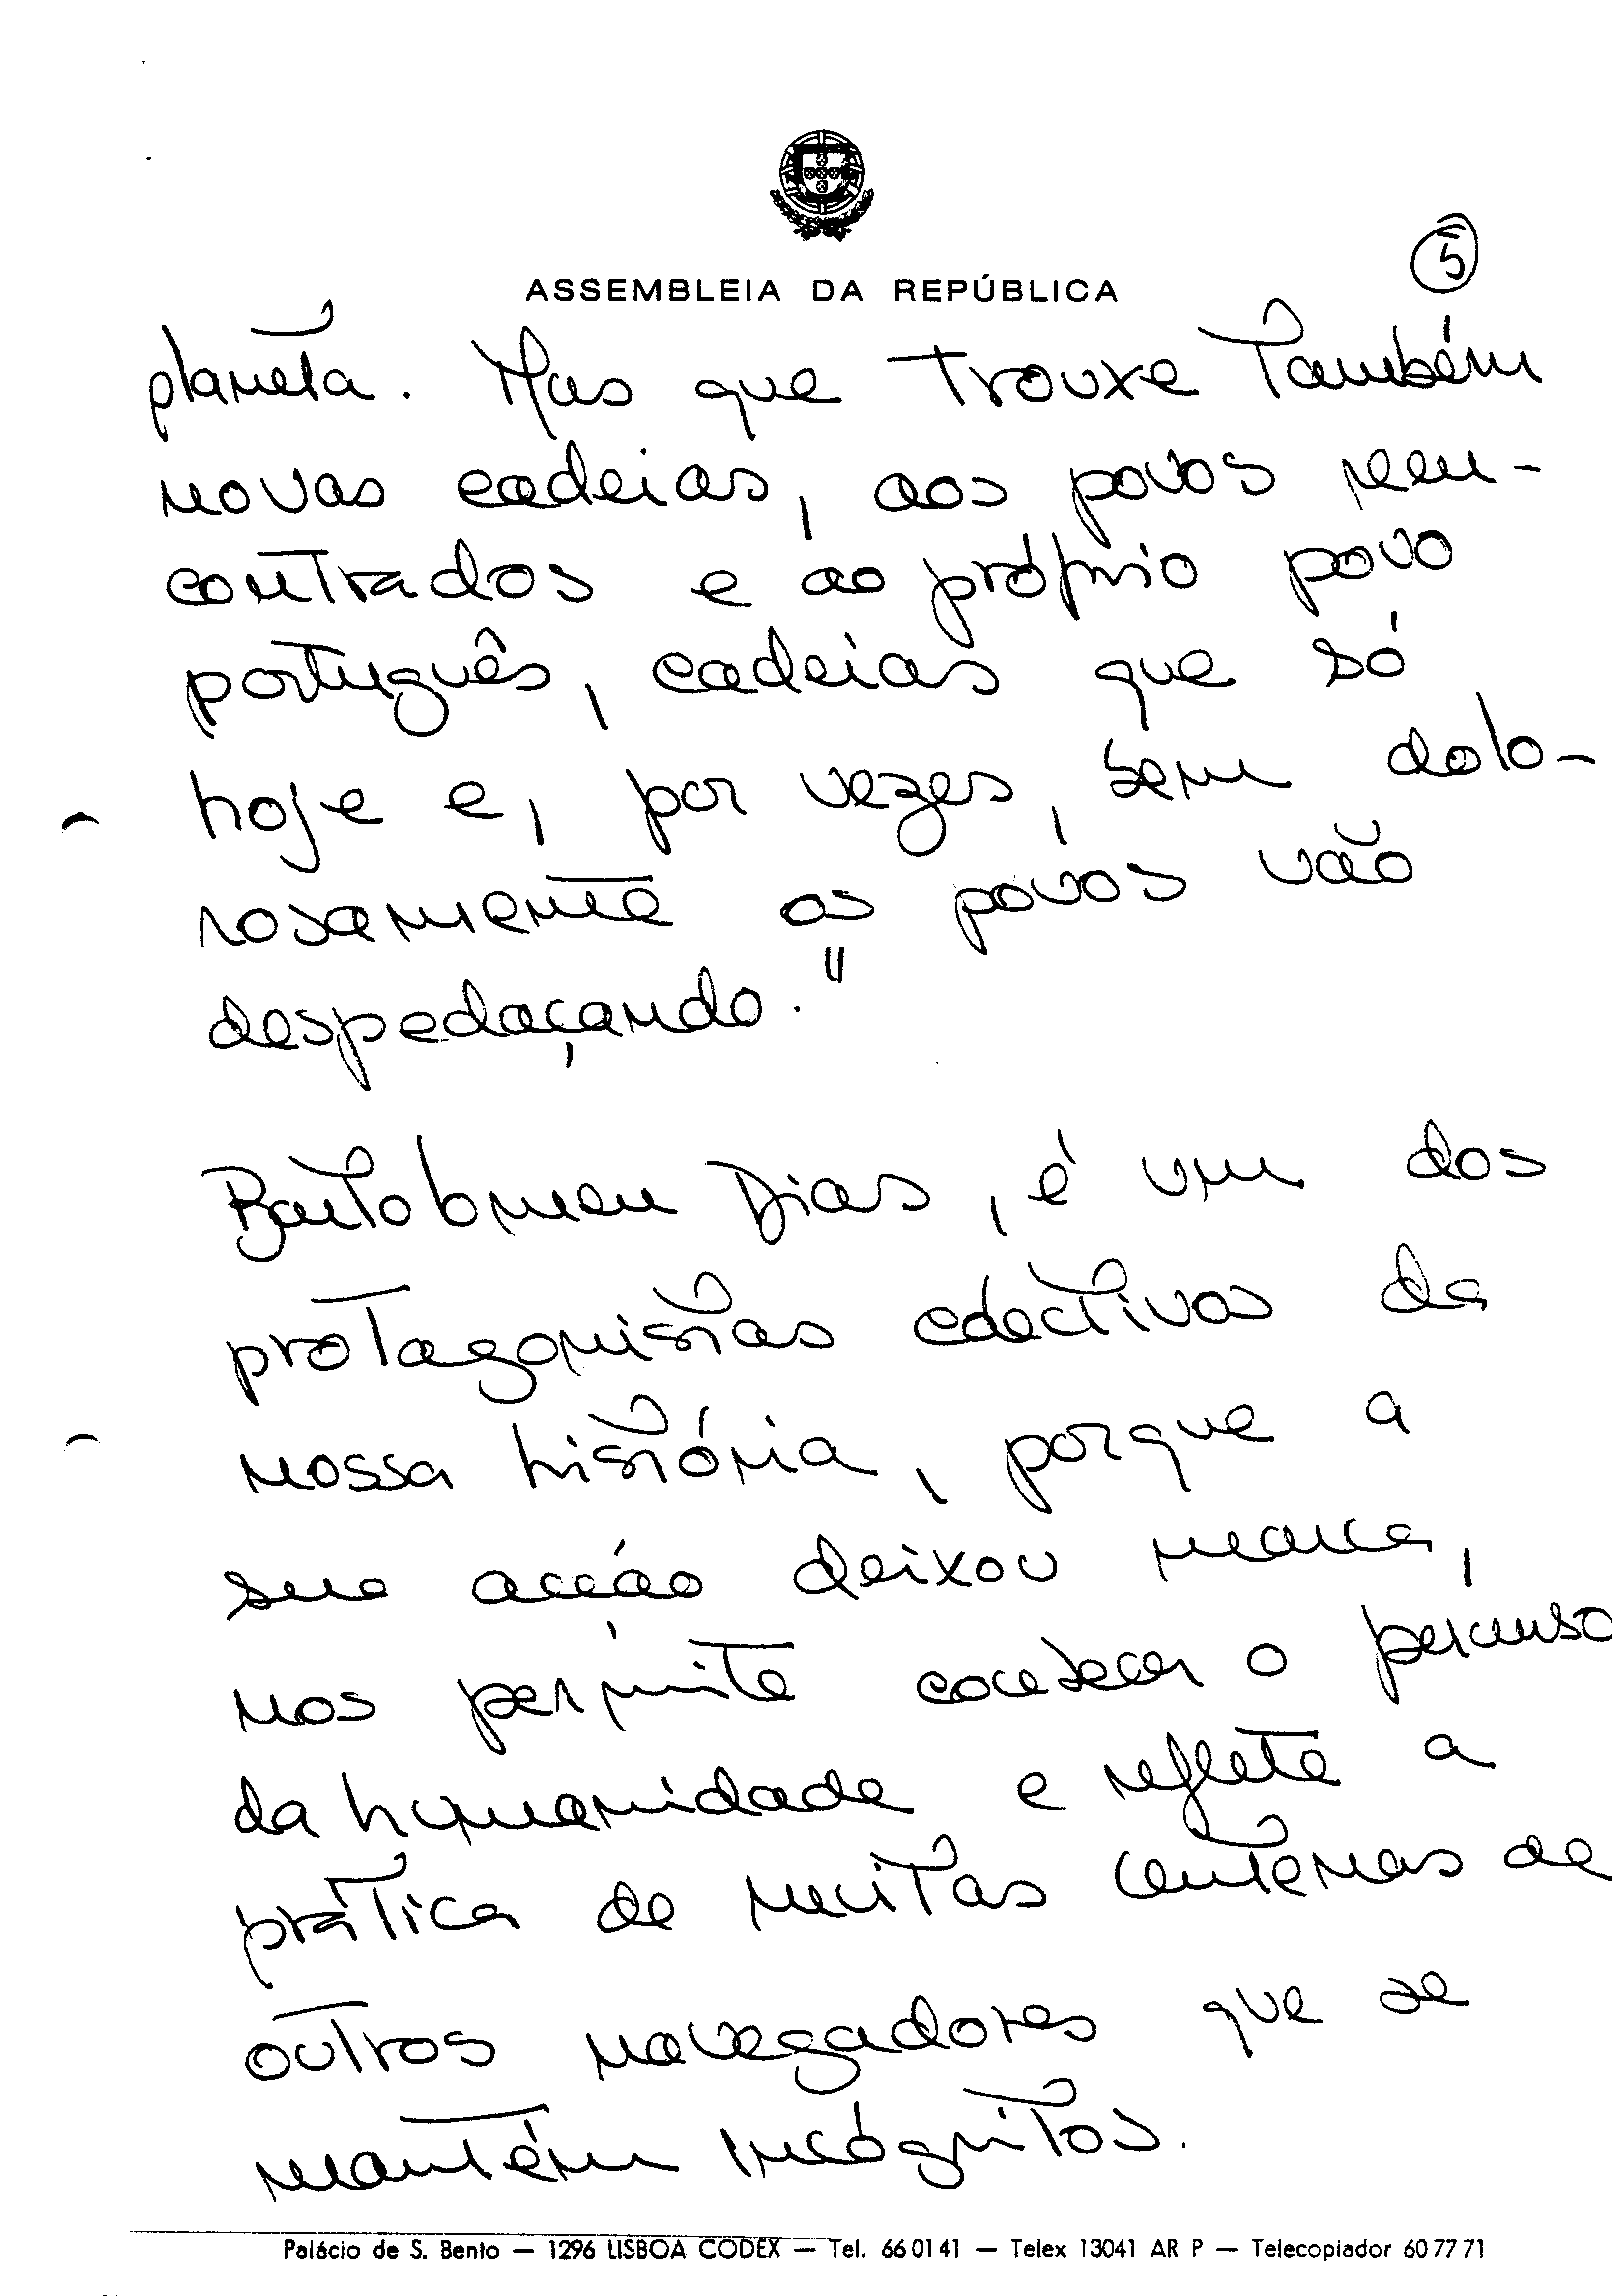 ASSEMBLEIA DA REPÚBLICA
5
planeta. Mas que trouxe também
novas cadeias, aos povos reen-
contrados e ao próprio povo
português, cadeias que só
hoje e, por vezes, bem dolo-
rosamente os povos vão
despedaçando."
Bartolomeu Dias, é um dos
protagonistas colectivos da
nossa história, porque a
sua acção deixou marca,
nos permite conhecer o percurso
da humanidade e reflete a
prática de muitas centenas de
outros navegadores que se
mantém incógnitos.
Palácio de S. Bento — 1296 LISBOA CODEX — Tel. 66 01 41 — Telex 13041 AR P — Telecopiador 60 77 71